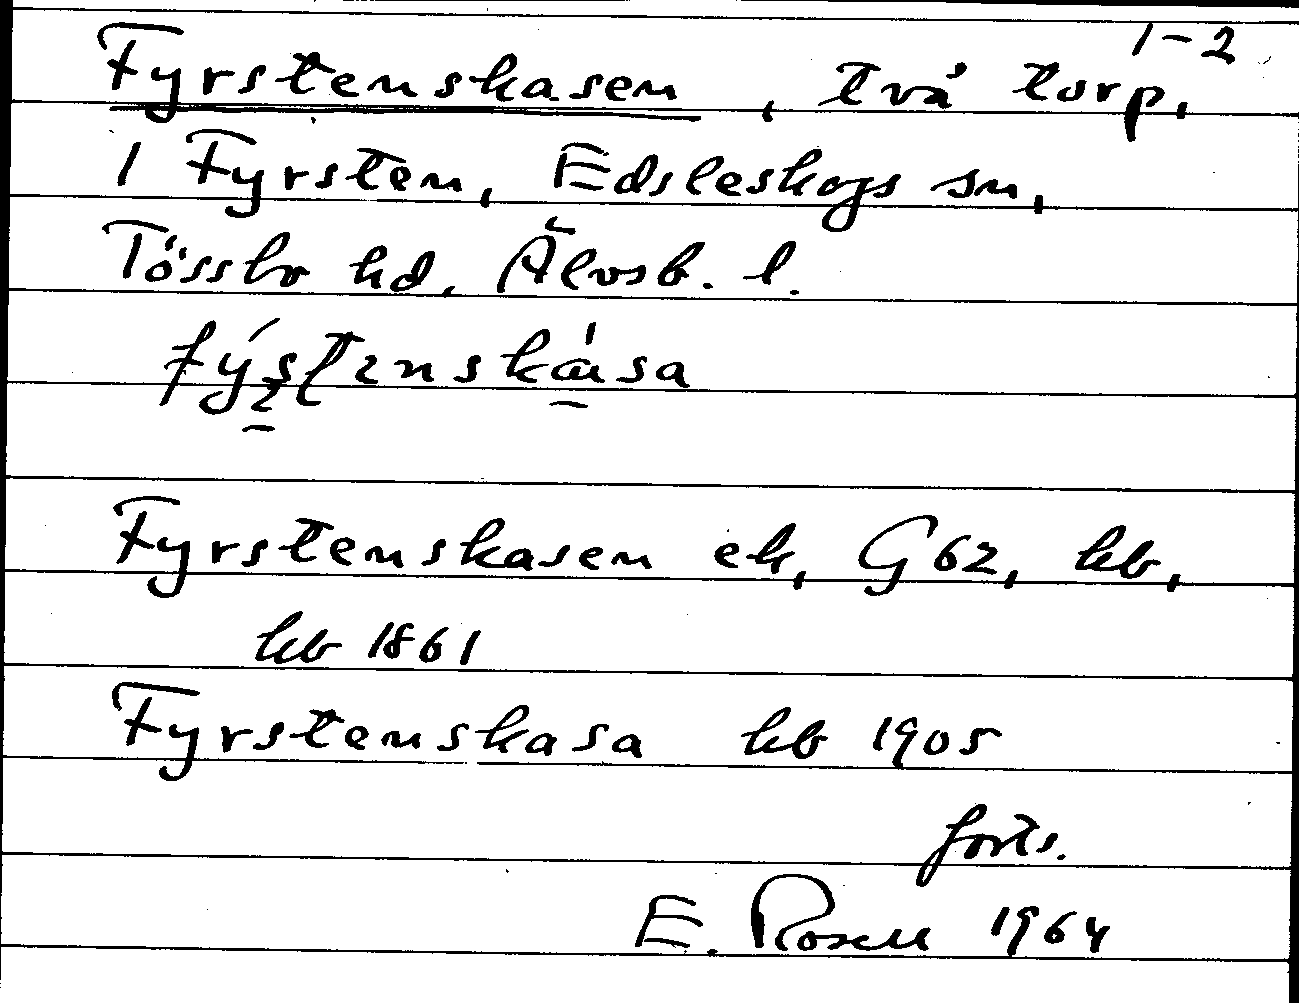 1-2
Fyrstenskasen, två torp,
1 Fyrsten, Edsleskogs sn,
Tössbo hd. Älvsb. l.
Fyrstenskasen ek, G62, kb,
kb 1861
Fyrstenskasa kb 1905
forts.
E. Rosell 1964